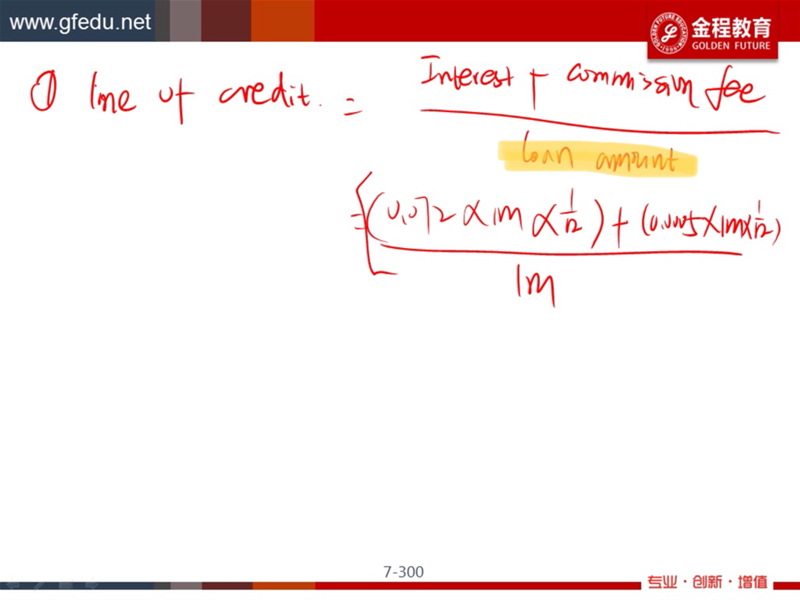 www.gfedu.net
金程教育
GOLDEN FUTURE
① line of credit. = Interest + commission fee
loan amount
= [(0.072 × 1m × 1/12) + (0.005 × 1m × 1/12)
1m
7-300
专业·创新·增值